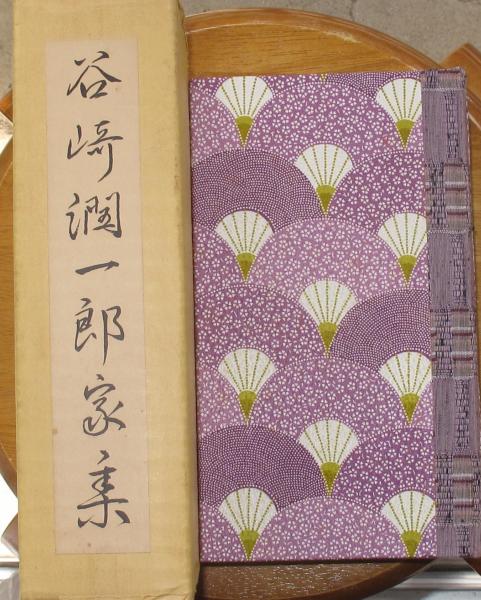 谷崎潤一郎家集